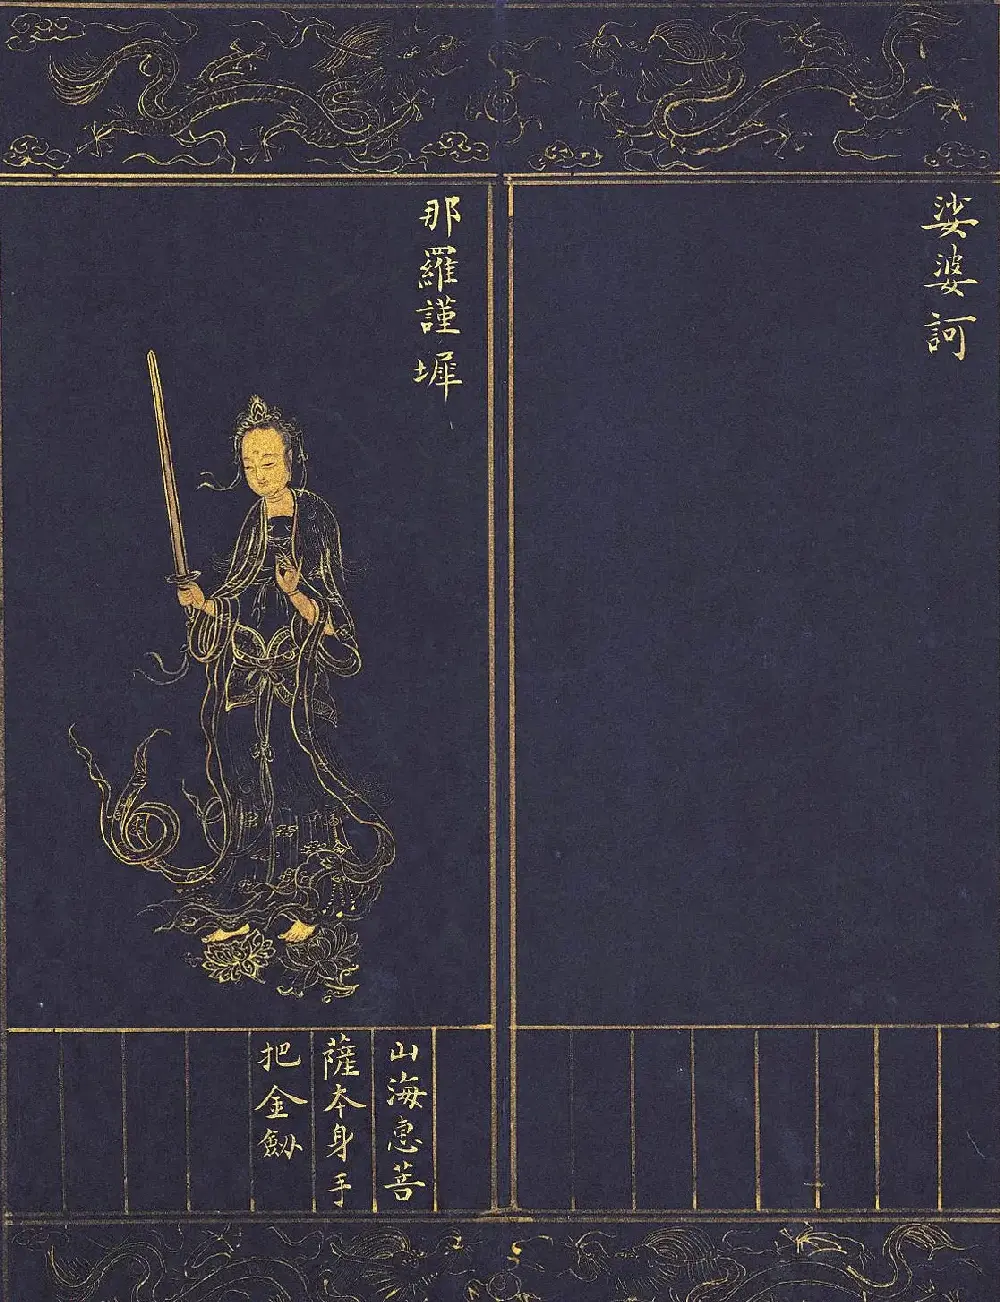 娑婆訶
那羅謹墀
山海惠菩
薩本身手
把金劔